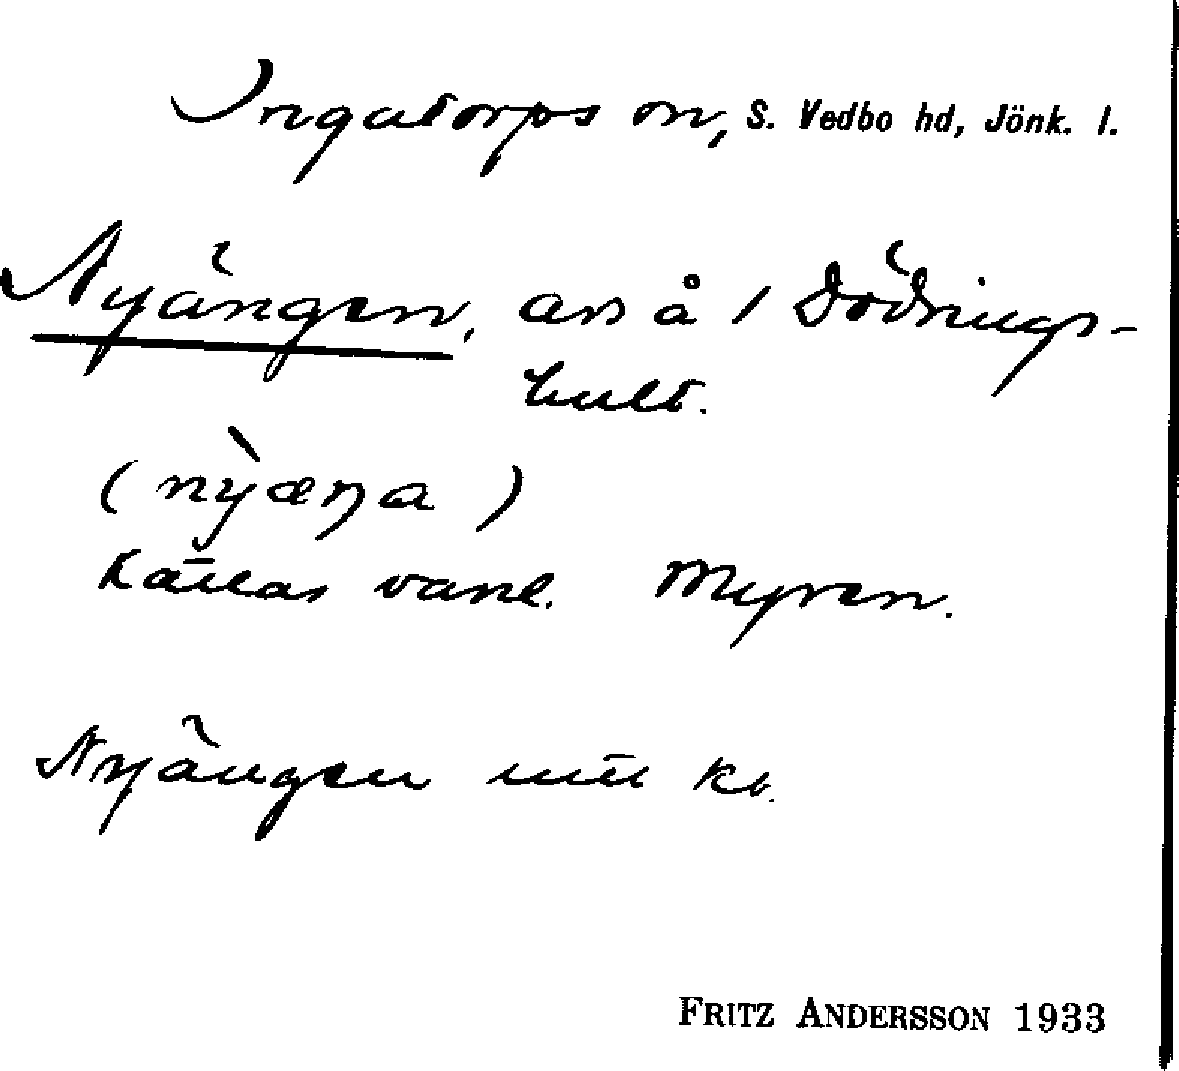 Ingatorps sn, S. Vedbo hd, Jönk. l.
Nyängen, avs å / Dödrings-
hult.
(nỳæŋa)
Kallas vanl. Myren.
Nyängen
FRITZ ANDERSSON 1933